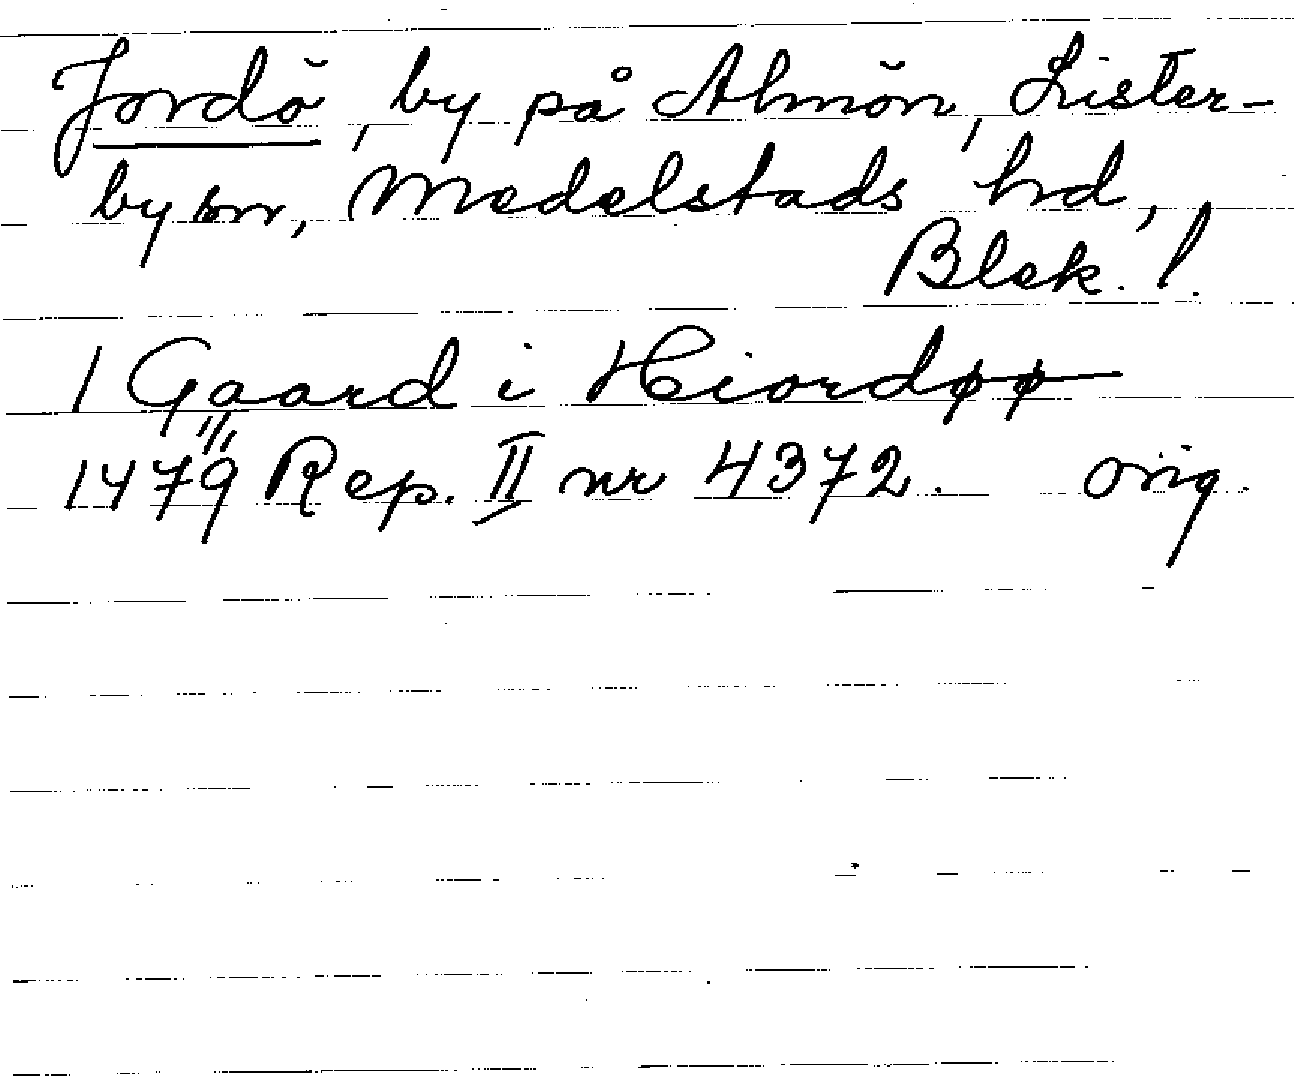 Jordö, by på Almön, Lister-
by sn, Medelstads hd,
Blek. l.
1 Gaard i Hiordøø
1479 Rep. II nr 4372. orig.